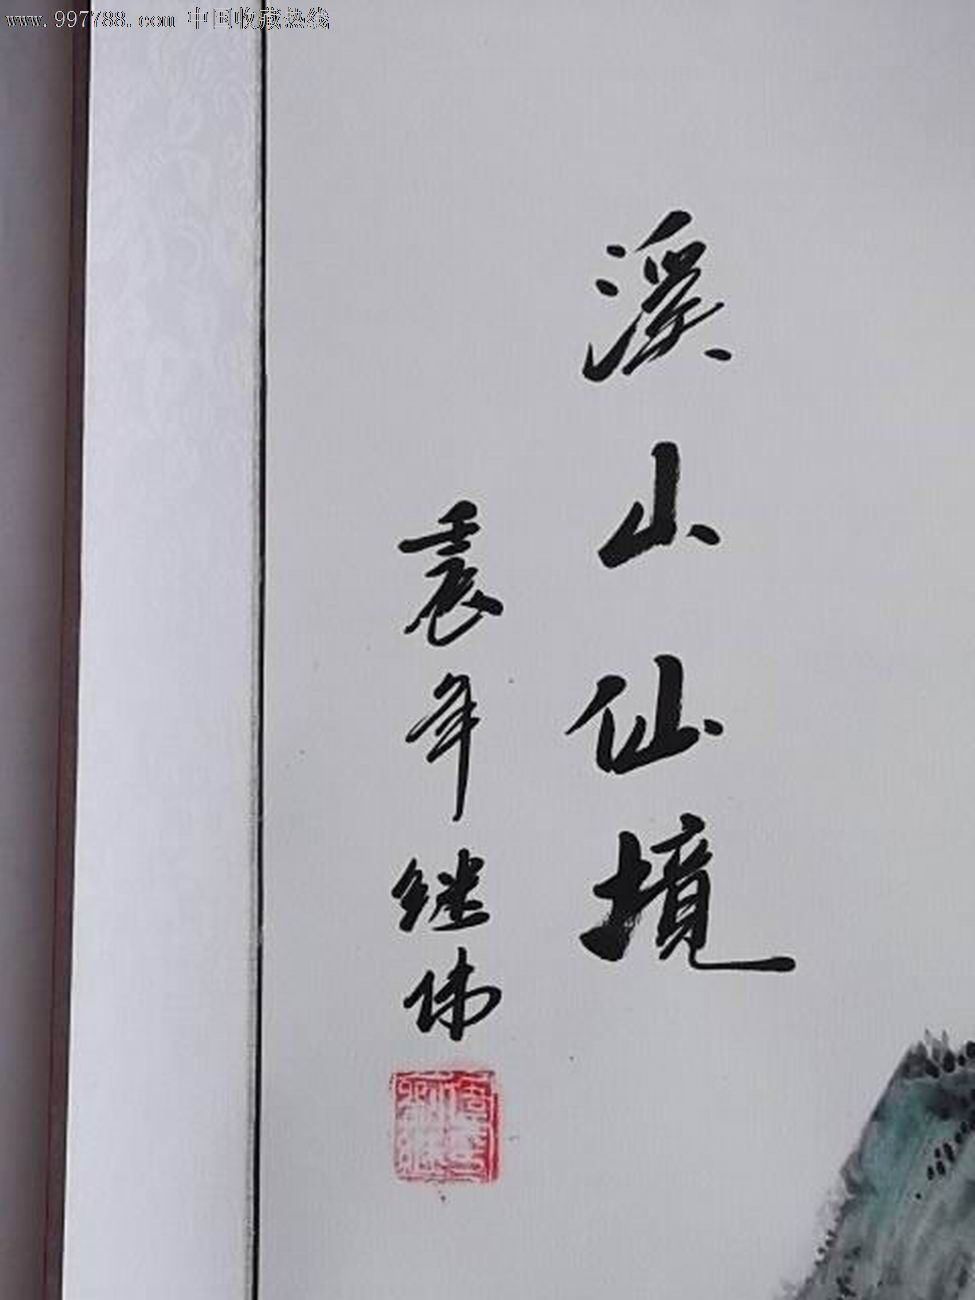 www.997788.com 中国收藏热线
溪山仙境
壬辰年继伟